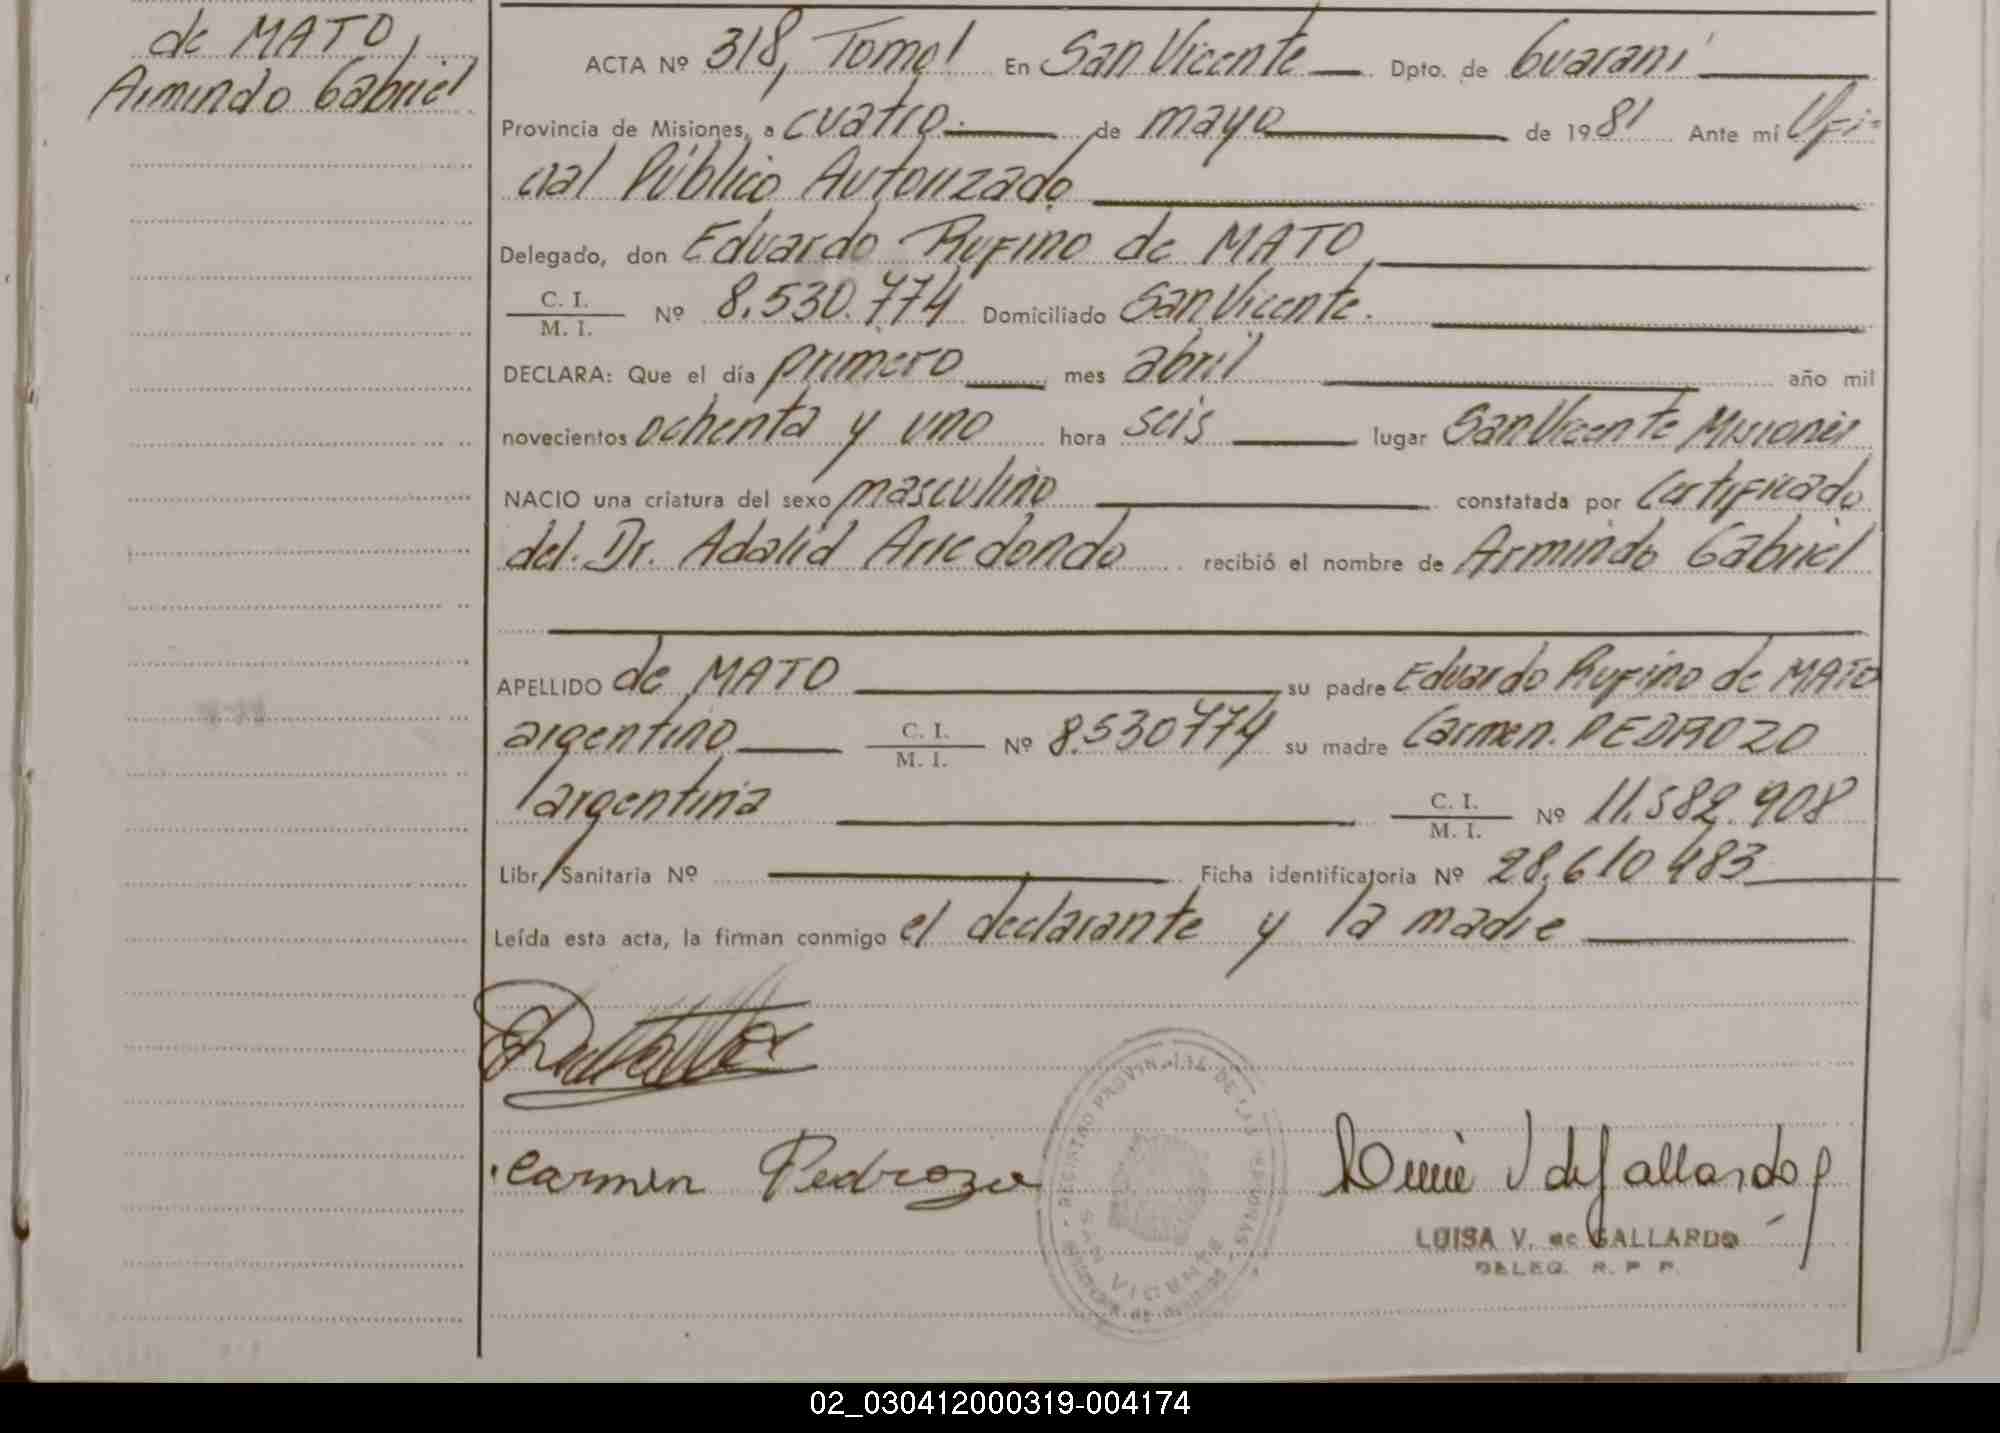 de MATO,
Armindo Gabriel
ACTA Nº 318, Tomo I En San Vicente Dpto. de Guaraní
Provincia de Misiones, a cuatro.- de mayo de 1981 Ante mí Ofi-
cial Público Autorizado
Delegado, don Eduardo Rufino de MATO,
C. I.
M. I. Nº 8.530.774 Domiciliado San Vicente.
DECLARA: Que el día primero mes abril año mil
novecientos ochenta y uno hora seis lugar San Vicente Misiones
NACIO una criatura del sexo masculino constatada por Certificado
del. Dr. Adalid Arredondo recibió el nombre de Armindo Gabriel
APELLIDO de MATO su padre Eduardo Rufino de MATO
argentino C. I.
M. I. Nº 8.530774 su madre Carmen. PEDROZO
argentina C. I.
M. I. Nº 11.582.908
Libr/Sanitaria Nº Ficha identificatoria Nº 28.610483
Leída esta acta, la firman conmigo el declarante y la madre
Carmen Pedrozo
REGISTRO PROVINCIAL DE LAS
SAN VICENTE
LUISA V. de GALLARDO
DELEG. R. P. P.
02_030412000319-004174